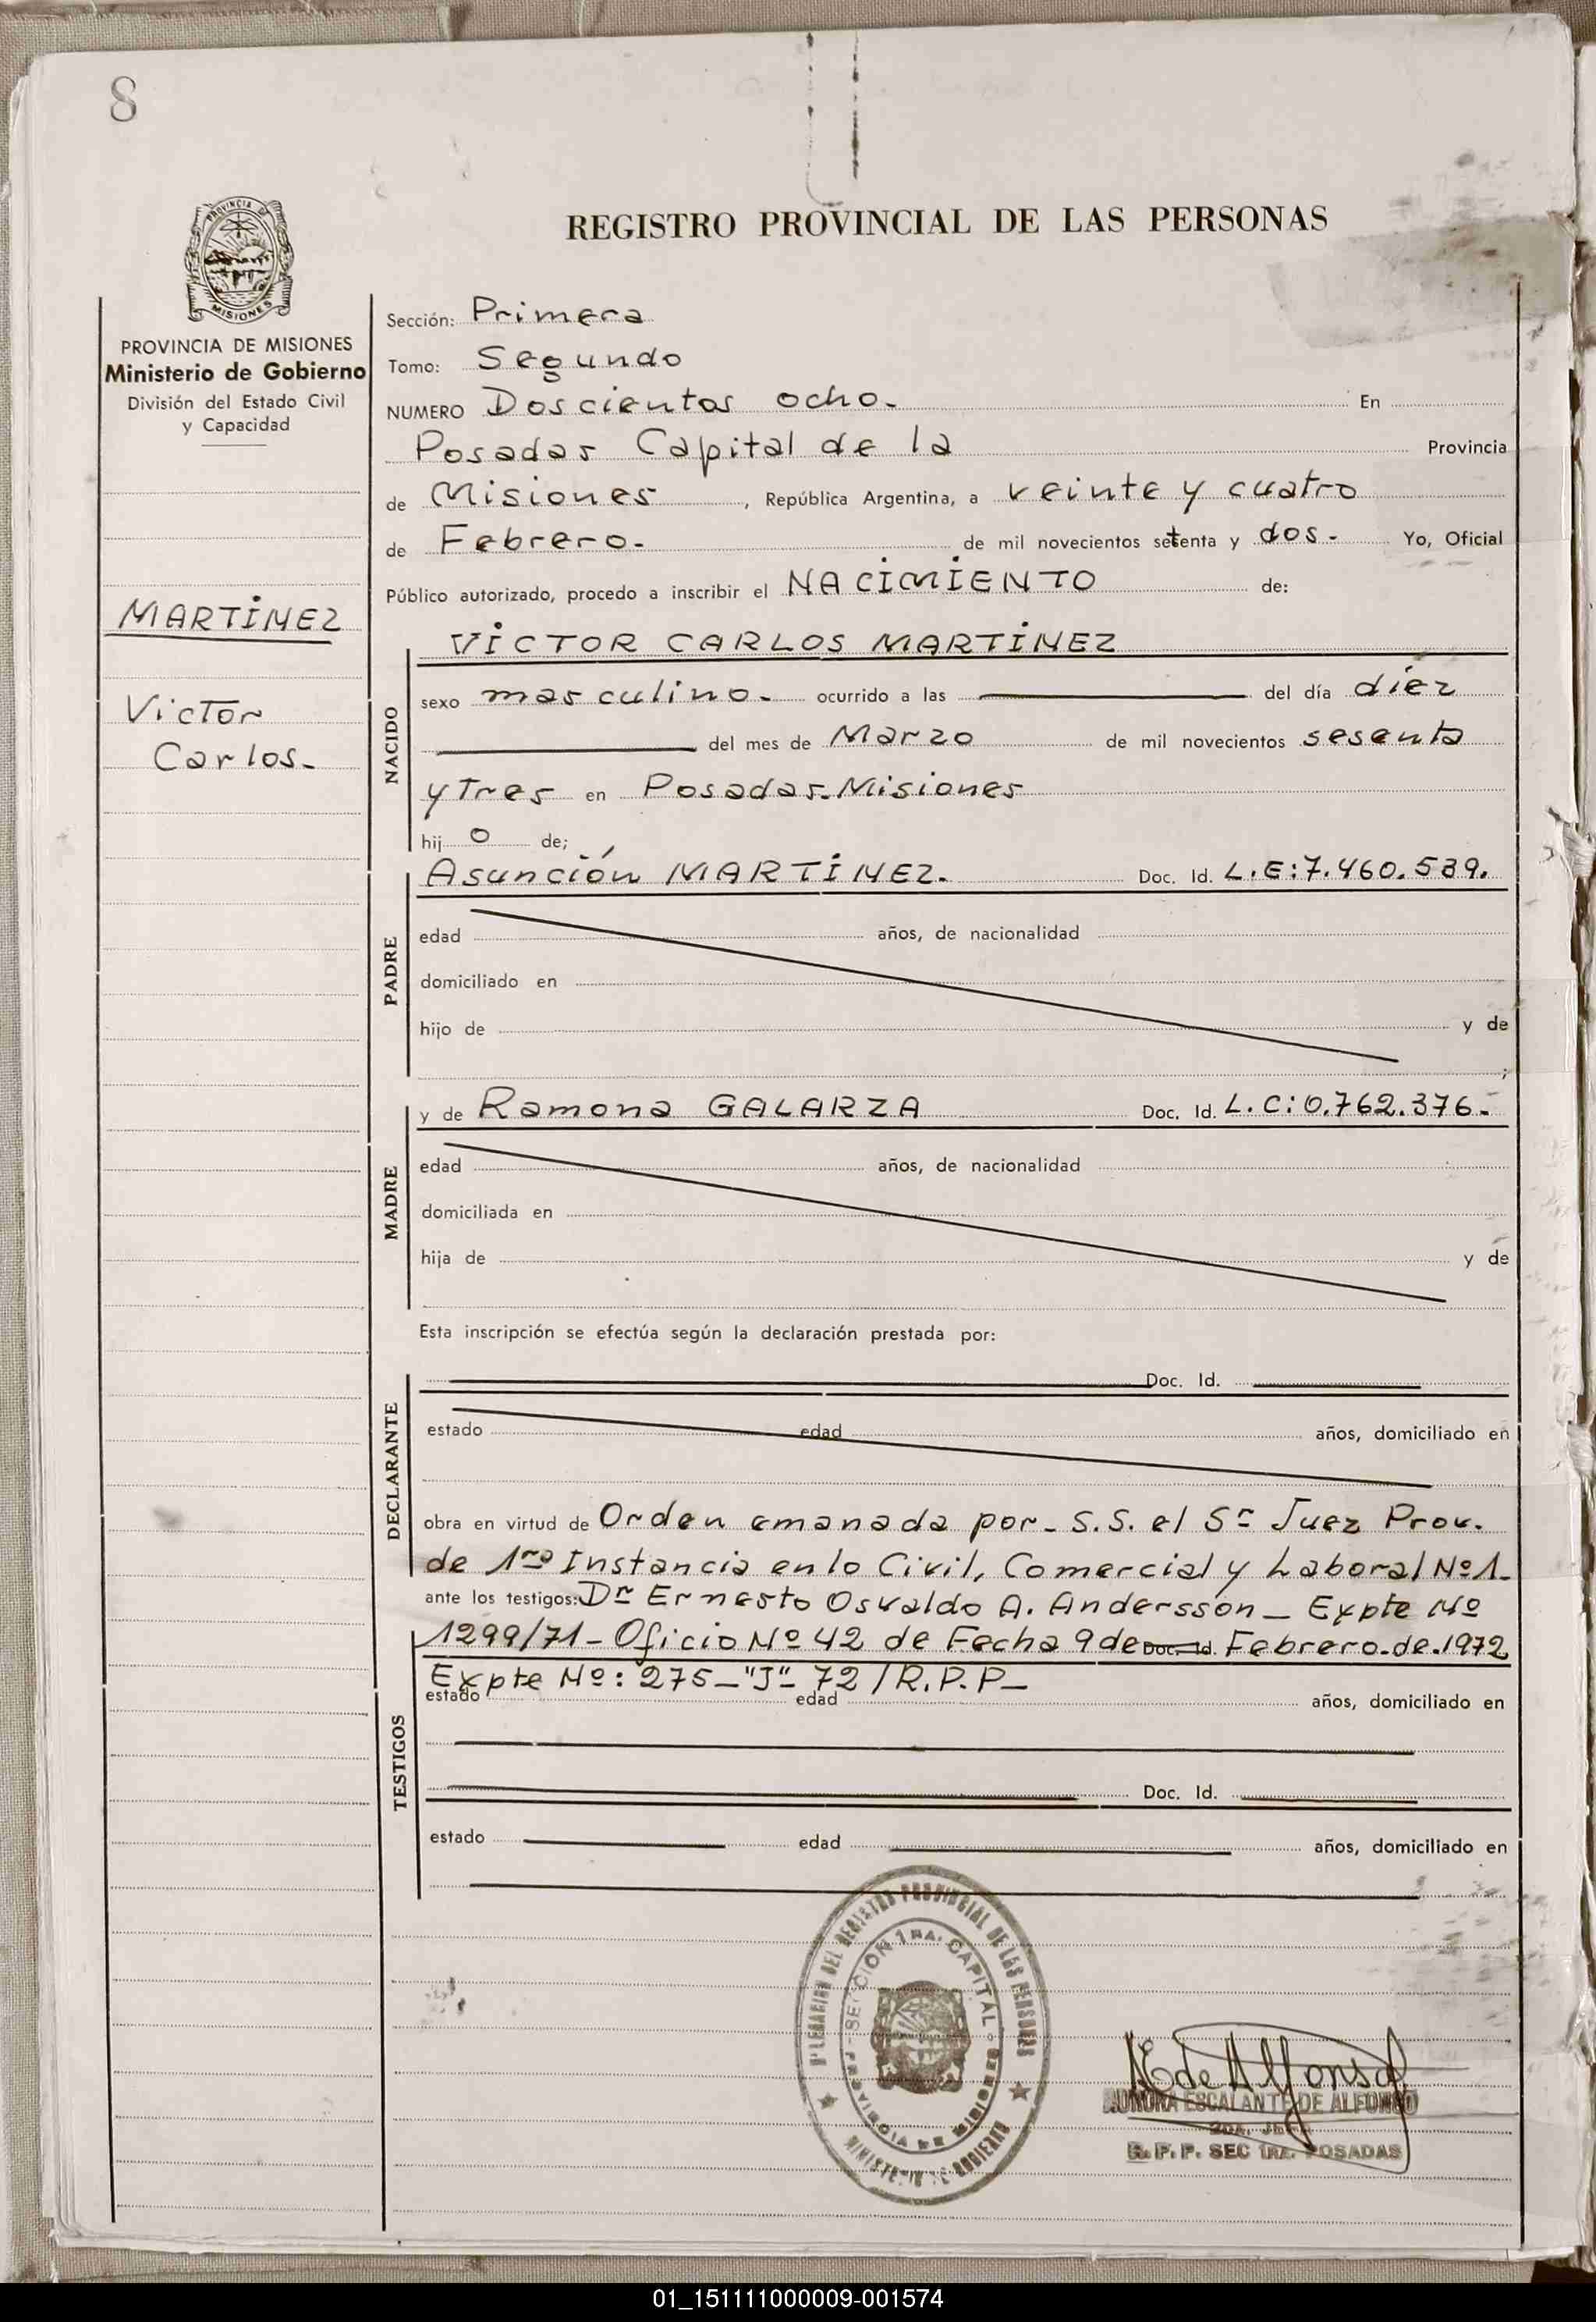 8
PROVINCIA DE MISIONES
REGISTRO PROVINCIAL DE LAS PERSONAS
PROVINCIA DE MISIONES
Ministerio de Gobierno
División del Estado Civil
y Capacidad
MARTINEZ
Victor
Carlos-
Sección: Primera
Tomo: Segundo
NUMERO Doscientos ocho. En
Posadas Capital de la Provincia
de Misiones, República Argentina, a veinte y cuatro
de Febrero. de mil novecientos setenta y dos. Yo, Oficial
Público autorizado, procedo a inscribir el NACIMIENTO de:
NACIDO
VICTOR CARLOS MARTINEZ
sexo masculino. ocurrido a las del día diez
del mes de Marzo de mil novecientos sesenta
y Tres en Posadas-Misiones
hij o de;
PADRE
Asunción MARTÍNEZ. Doc. Id. L.E:7.460.589.
edad años, de nacionalidad
domiciliado en
hijo de y de
;
MADRE
y de Ramona GALARZA Doc. Id. L.C:0.762.376-
edad años, de nacionalidad
domiciliada en
hija de y de
Esta inscripción se efectúa según la declaración prestada por:
DECLARANTE
Doc. Id.
estado edad años, domiciliado en
obra en virtud de Orden emanada por- S.S. el Sr Juez Prov.
de 1ra Instancia en lo Civil, Comercial y Laboral Nº1-
ante los testigos: Dr Ernesto Osvaldo A. Andersson- Expte Nº
1299/71- Oficio Nº 42 de Fecha 9 de Doc. Id. Febrero.de.1972
Expte Nº: 275-"J"- 72/R.P.P-
TESTIGOS
estado edad años, domiciliado en
Doc. Id.
estado edad años, domiciliado en
DEL REGISTRO PROVINCIAL DE LAS PERSONAS
SECCION 1RA. CAPITAL
PROVINCIA DE MISIONES
MINISTERIO DE GOBIERNO
de Alfonso
AURORA ESCALANTE DE ALFONSO
R. P. P. SEC 1RA. POSADAS
01_151111000009-001574